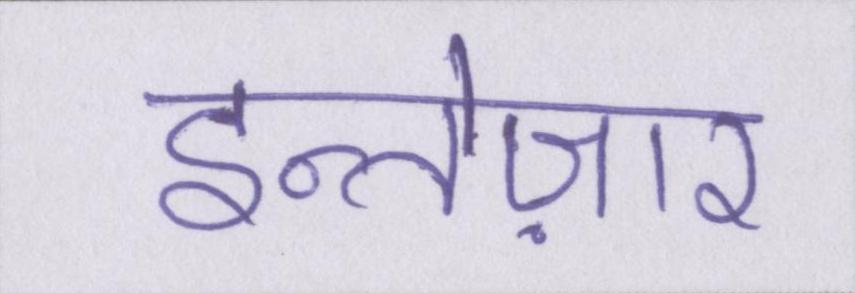 इन्तेज़ार